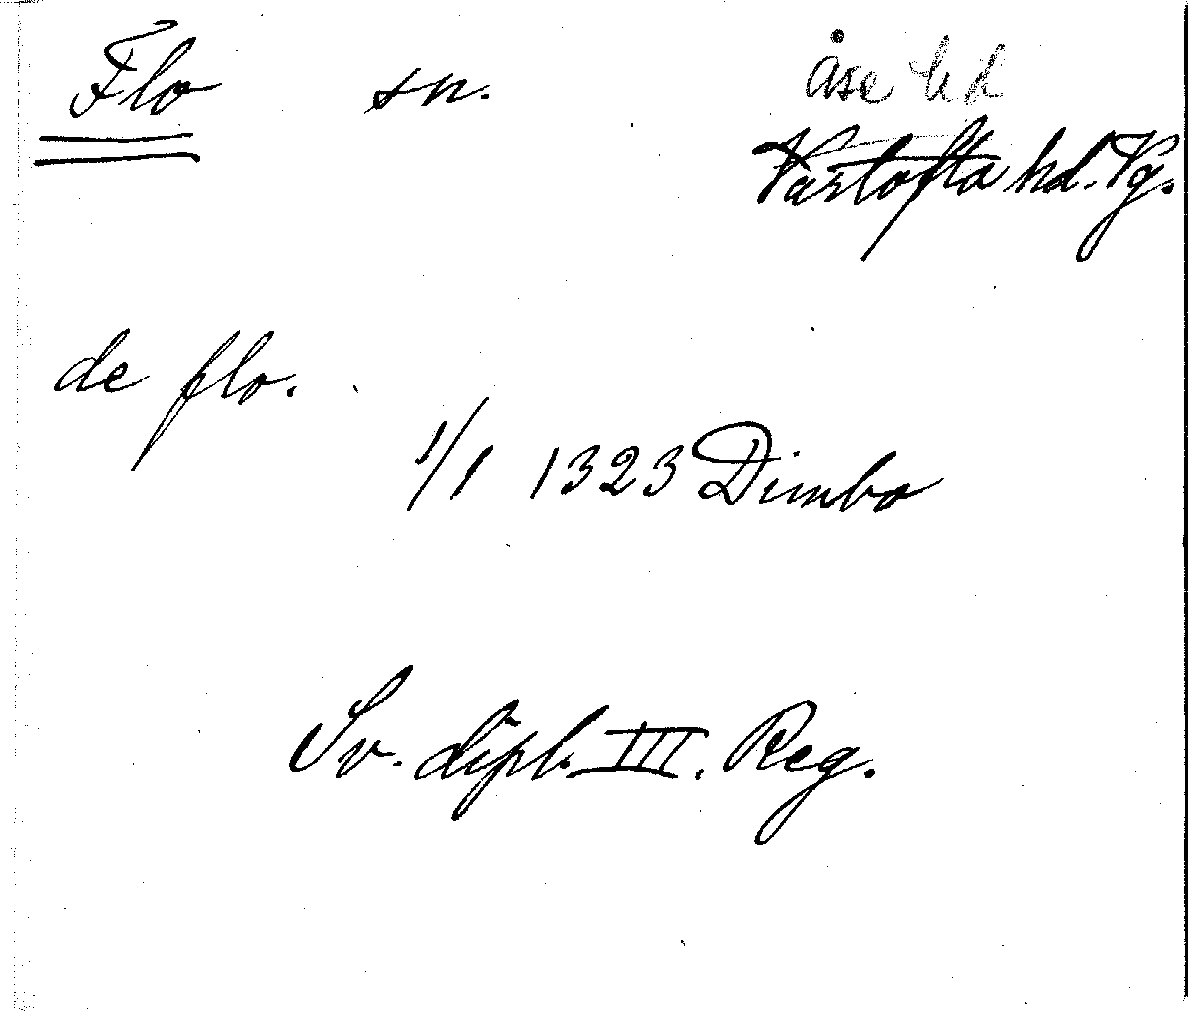 Flo sn. Åse hd
Vartofta hd. Vg.
de flo.
1/1 1323 Dimbo
Sv. dipl. III. Reg.